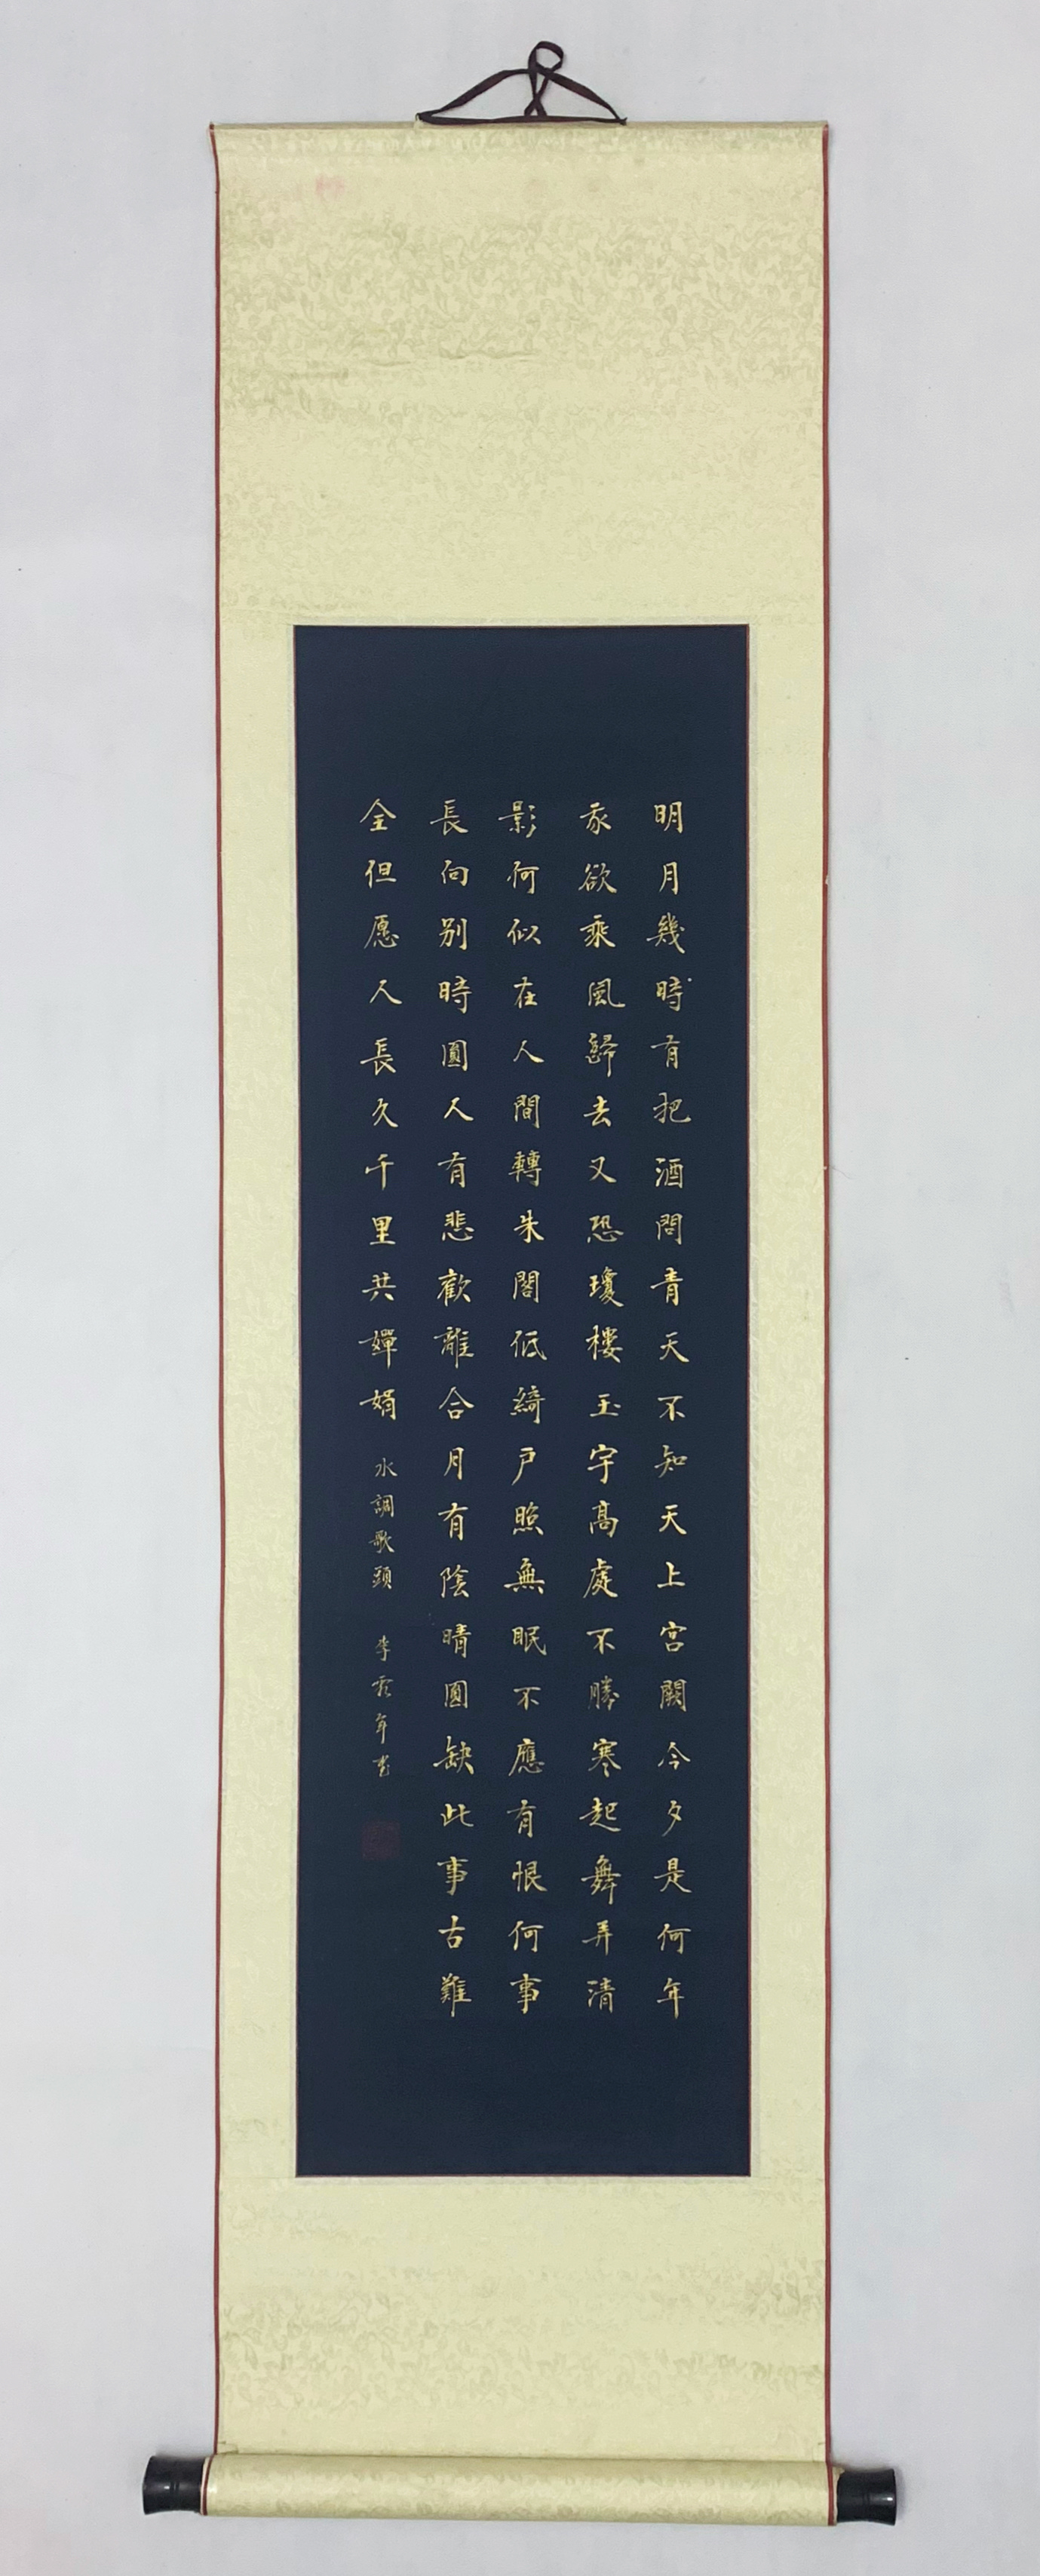 明月幾時有把酒問青天不知天上宮闕今夕是何年
我欲乘風歸去又恐瓊樓玉宇高處不勝寒起舞弄清
影何似在人間轉朱閣低綺戶照無眠不應有恨何事
長向別時圓人有悲歡離合月有陰晴圓缺此事古難
全但愿人長久千里共嬋娟 水調歌頭 李 年